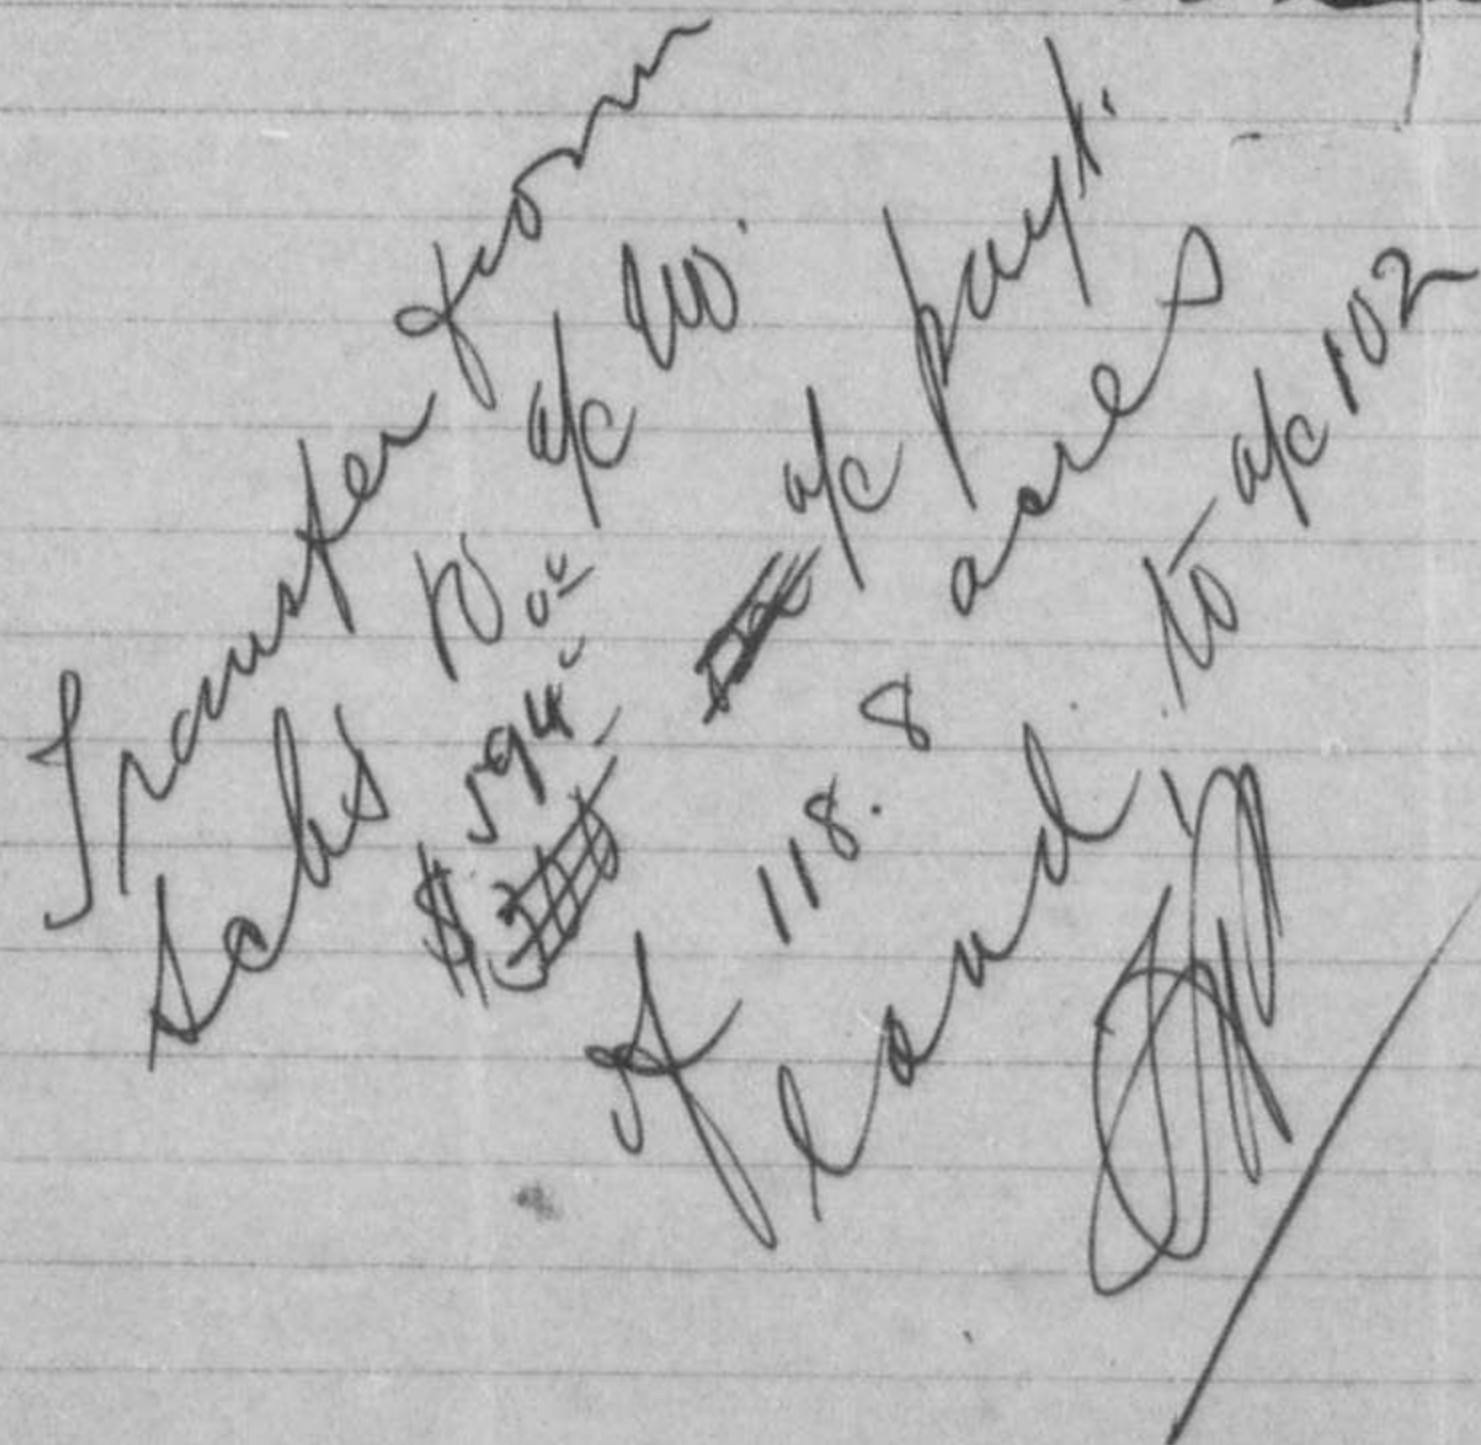 Transfer from
Sales to a/c
$ 594.00 a/c payt.
of 118.8 acres
land. to a/c 102